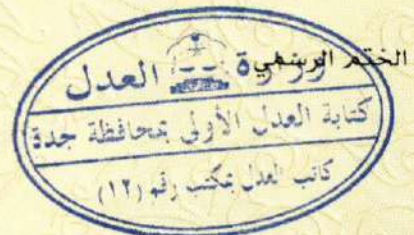 الختم الرسمي
وزارة العدل
كتابة العدل الأولى بمحافظة جدة
كاتب العدل بمكتب رقم (١٢)